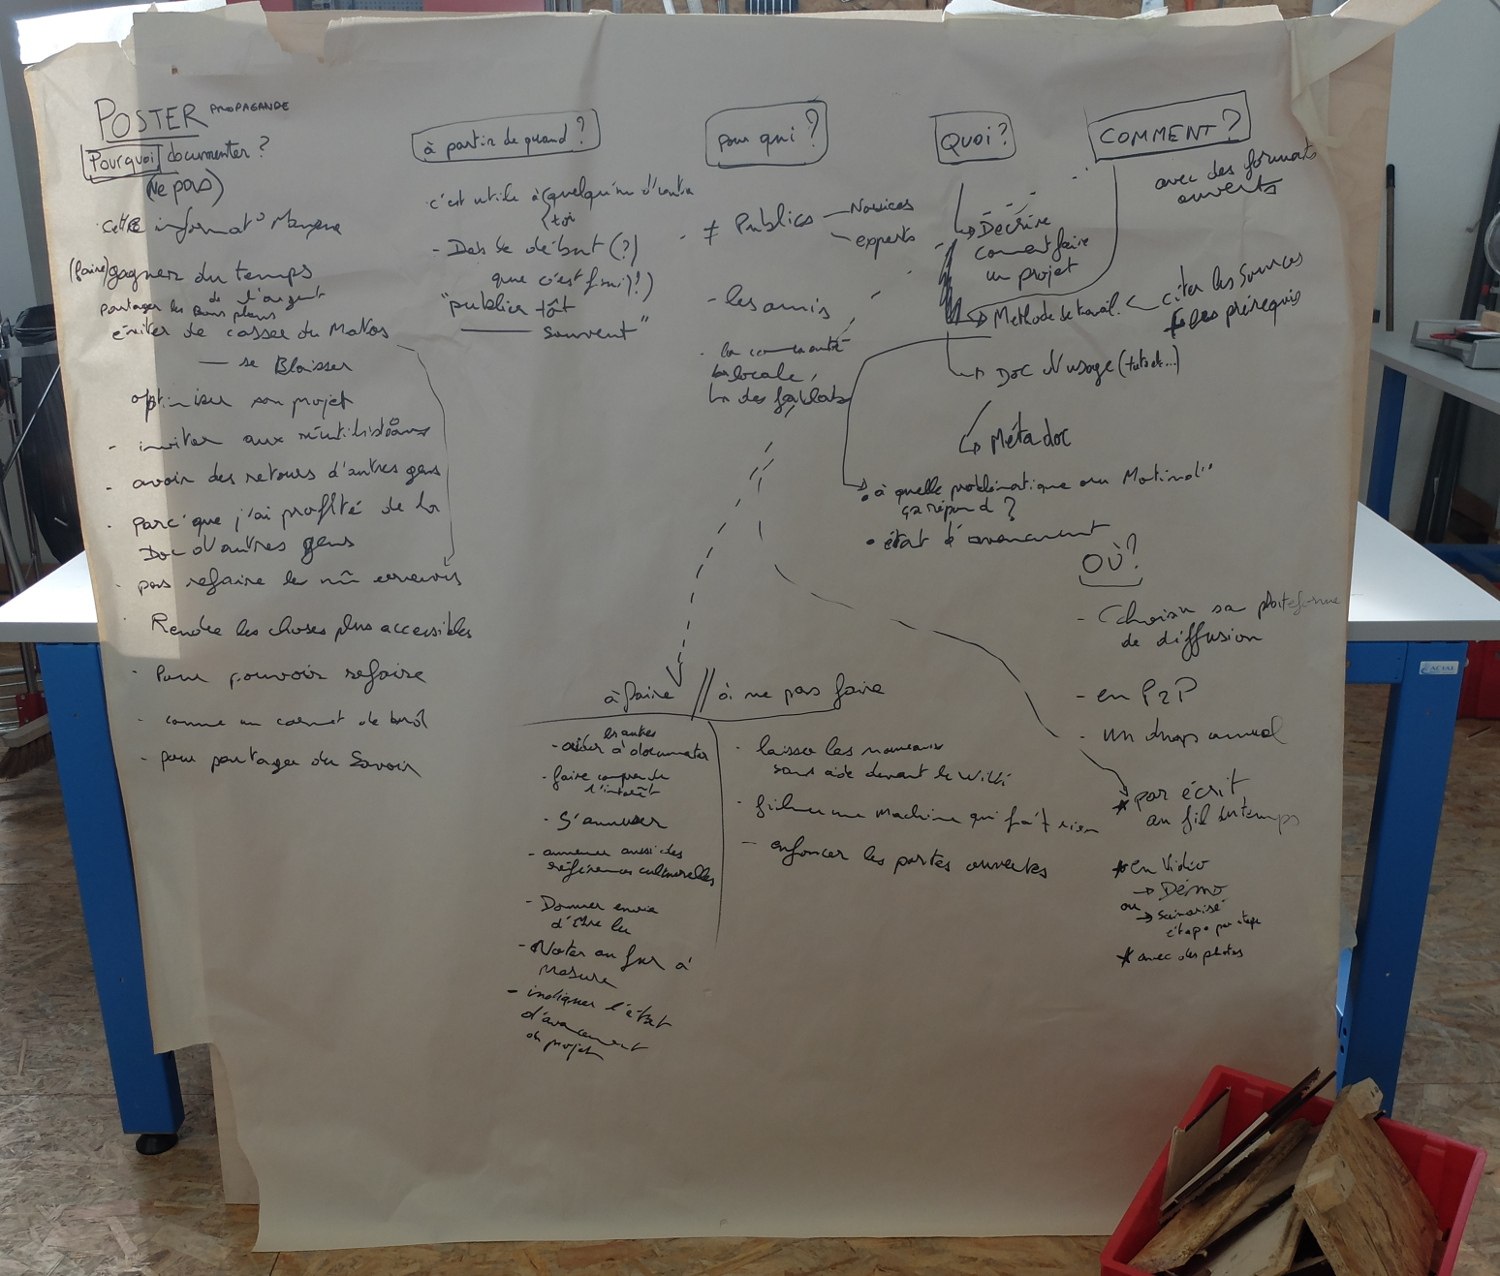 POSTER PROPAGANDE
Pourquoi documenter ?
(Ne pas)
cette informat° Manque
(faire) gagner du temps
de l'argent
partager les bons plans
éviter de casser du Matos
— se Blesser
optimiser son projet
- inviter aux réutilisations
- avoir des retours d'autres gens
- parc'que j'ai profité de la
Doc d'autres gens
- pas refaire les mm erreurs
- Rendre les choses plus accessibles
- Pour pouvoir refaire
- comme un carnet de bord
- pour partager du Savoir
à partir de quand ?
- c'est utile à quelqu'un d'autre
toi
- Dès le début (?)
que c'est fini (!)
"publier tôt
—— souvent"
pour qui ?
≠ Publics
Novices
experts
- les amis
- la communauté
locale,
des fablabs
QUOI ?
Décrire
comment faire
un projet
Methode de travail
citer les Sources
les prérequis
Doc d'usage (tuto...)
Méta doc
• à quelle problématique ou Motivat°
ça répond ?
• état d'avancement
COMMENT ?
avec des formats
ouverts
OÙ ?
- Choisir sa plateforme
de diffusion
- en P2P
- un drop annuel
* par écrit
au fil du temps
* en Vidéo
→ Démo
ou
→ Scénarisé
étape par étape
* avec des photos
à faire // à ne pas faire
les autres
- aider à documenter
- faire comprendre
l'intérêt
- S'amuser
- amener aussi des
références culturelles
- Donner envie
d'être lu
- Noter au fur à
mesure
- indiquer l'état
d'avancement
du projet
- laisser les nouveaux
sans aide devant le Wiki
- une Machine qui fait rien
- enfoncer les portes ouvertes